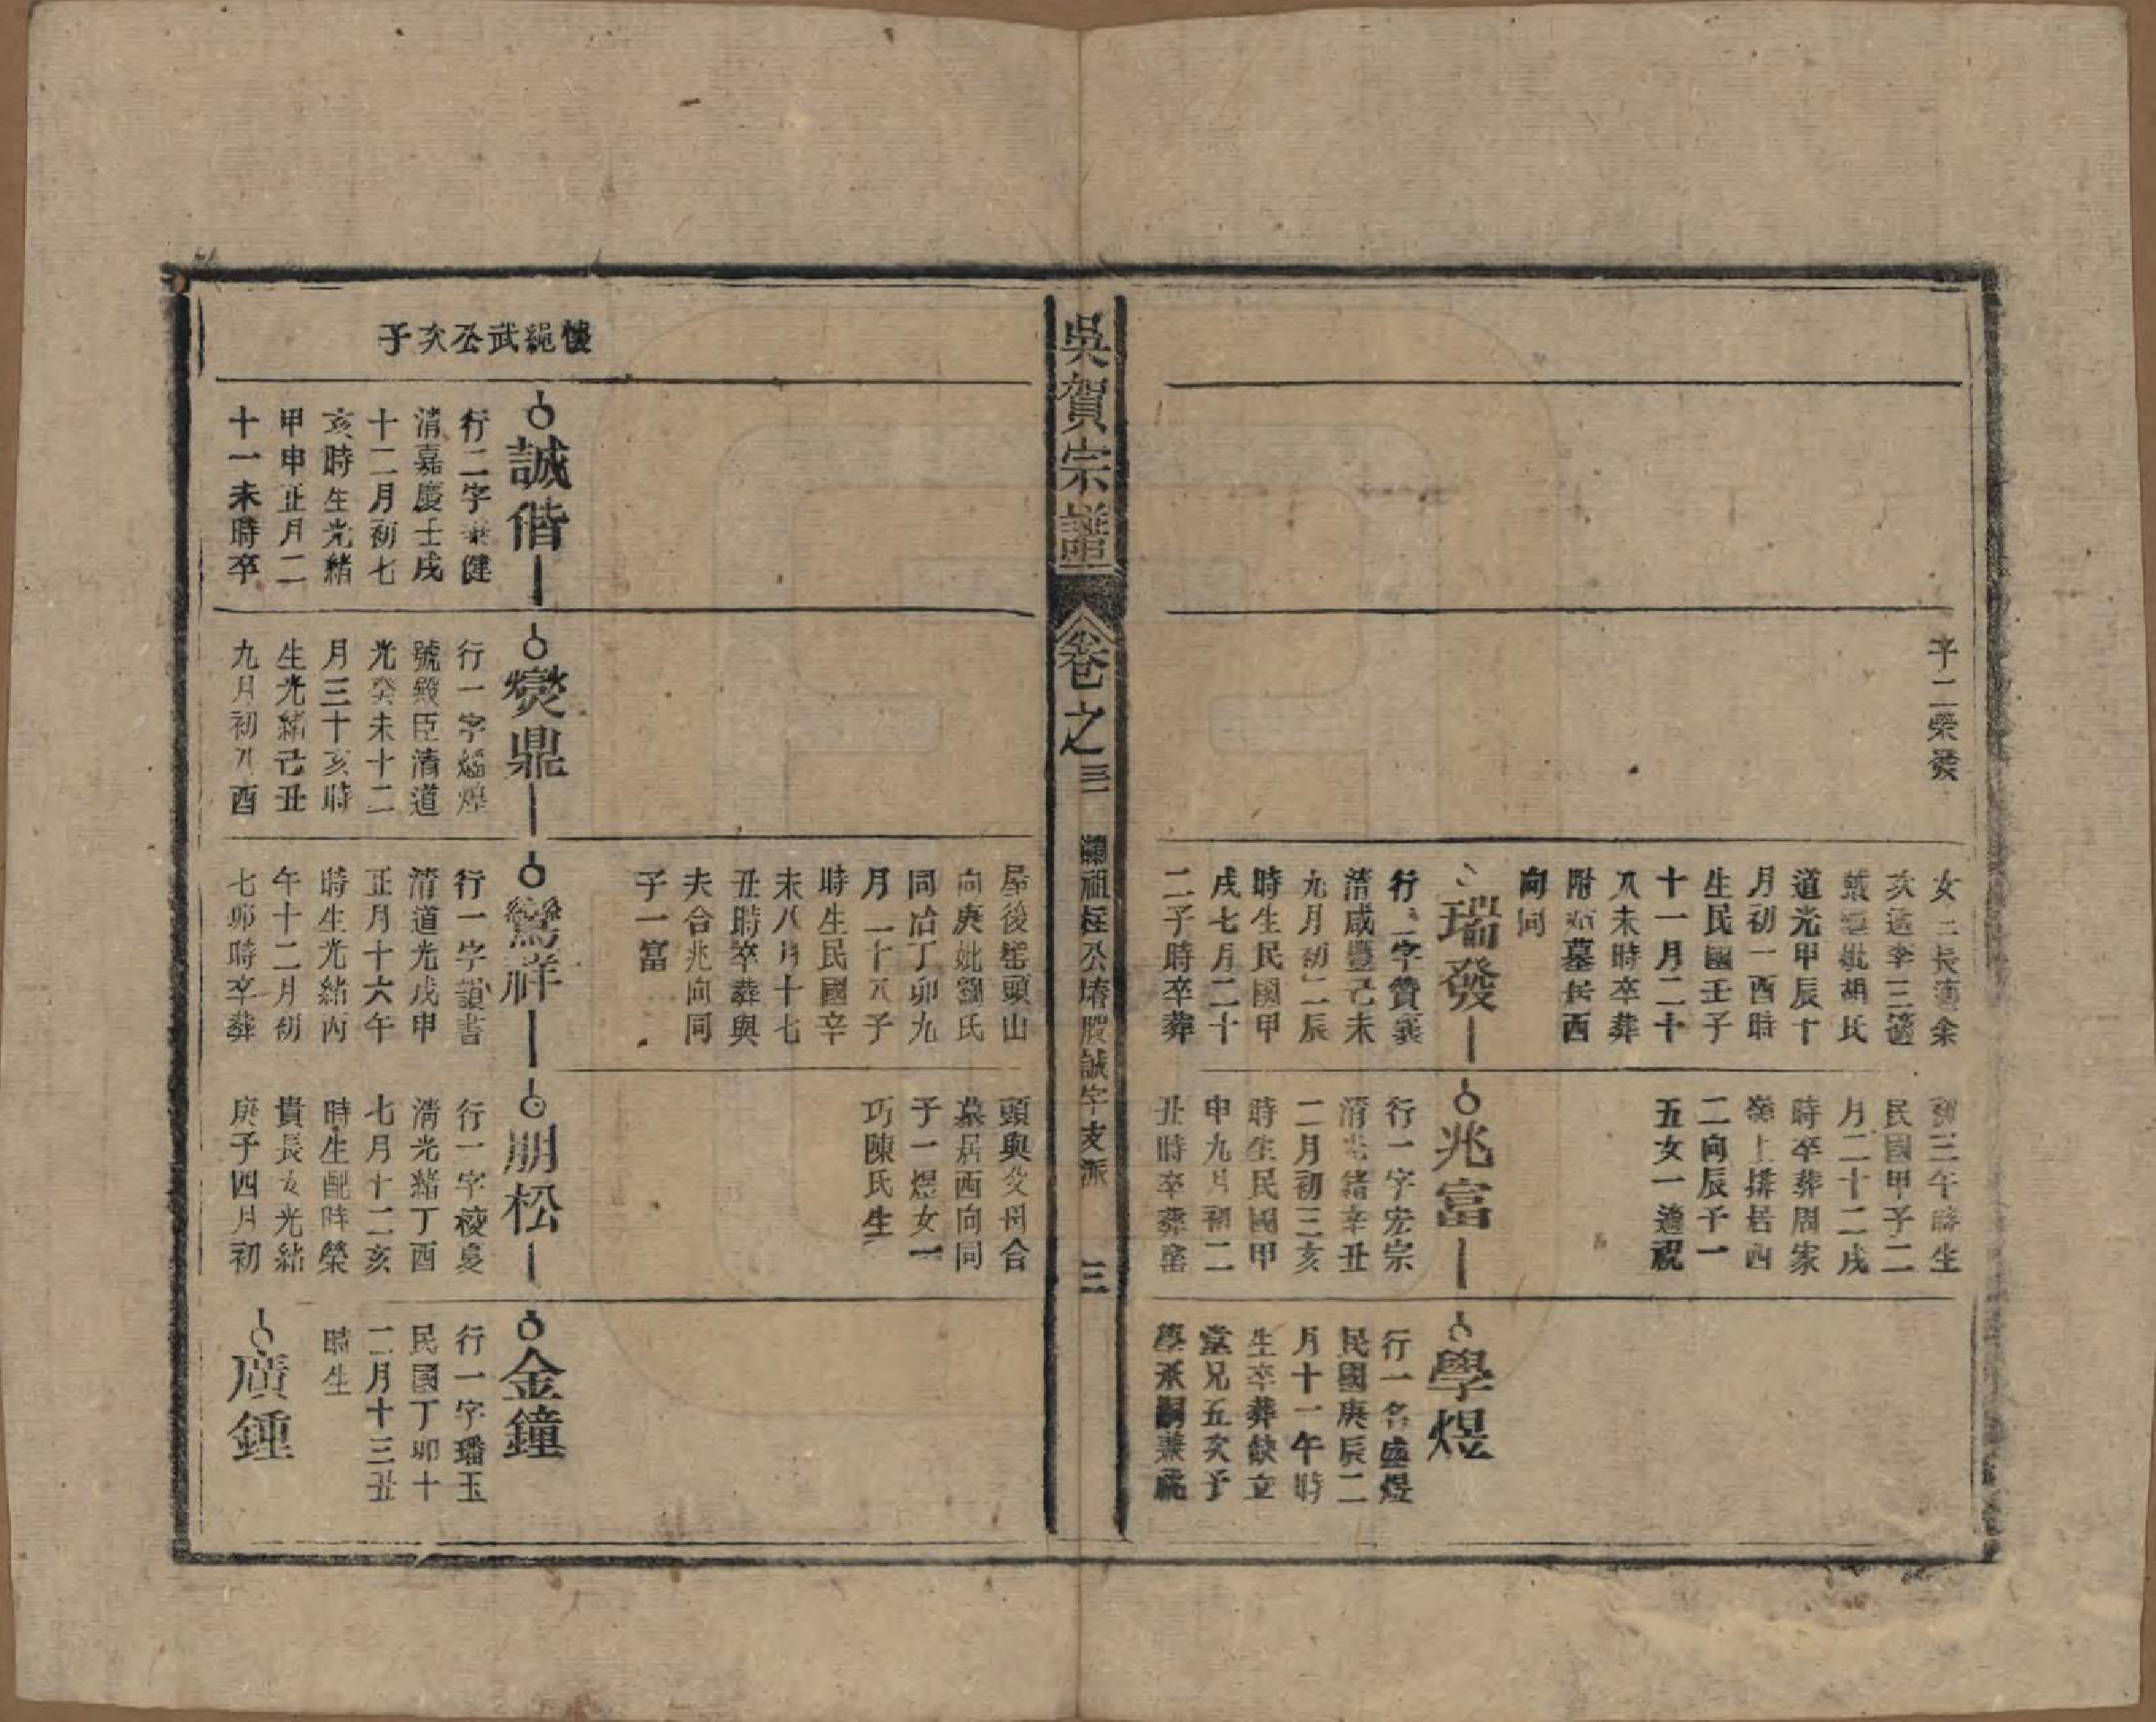 子二榮發
女三長適余
次適李三適
戴繼娶胡氏
道光甲辰十
月初一酉時
生民國壬子
十一月二十
八未時卒葬
附姑墓長酉
向同
瑞發
行二字贊襄
清咸豐己未
九月初二辰
時生民國甲
戌七月二十
二子時卒葬
初三午時生
民國甲子二
月二十二戌
時卒葬周家
嶺上排居酉
二向辰子一
五女一適祝
兆富
行一字宏宗
清光緒辛丑
二月初三亥
時生民國甲
申九月初二
丑時卒葬窑
學煜
行一名盛煜
民國庚辰二
月十一午時
生卒葬缺立
堂兄五次子
學承嗣兼祧
吳賀宗譜
卷之三
祖桎公堉股誠字支派
三
屋後窑頭山
向庚妣劉氏
同治丁卯九
月一十八子
時生民國辛
未八月十七
丑時卒葬與
夫合兆向同
子一富
頭與父母合
墓居酉向同
子一煜女一
巧陳氏生
繩武公次子
誠偕
行二字 健
清嘉慶壬戌
十二月初七
亥時生光緒
甲申正月二
十一未時卒
爕鼎
行一字 煌
號殿臣清道
光癸未十二
月三十亥時
生光緒己丑
九月初八酉
鸞祥
行一字韻書
清道光戊申
正月十六午
時生光緒丙
午十二月初
七卯時卒葬
朋松
行一字稜夏
清光緒丁酉
七月十二亥
時生配時榮
貴長女光緒
庚子四月初
金鐘
行一字璠玉
民國丁卯十
二月十三丑
時生
廣鍾